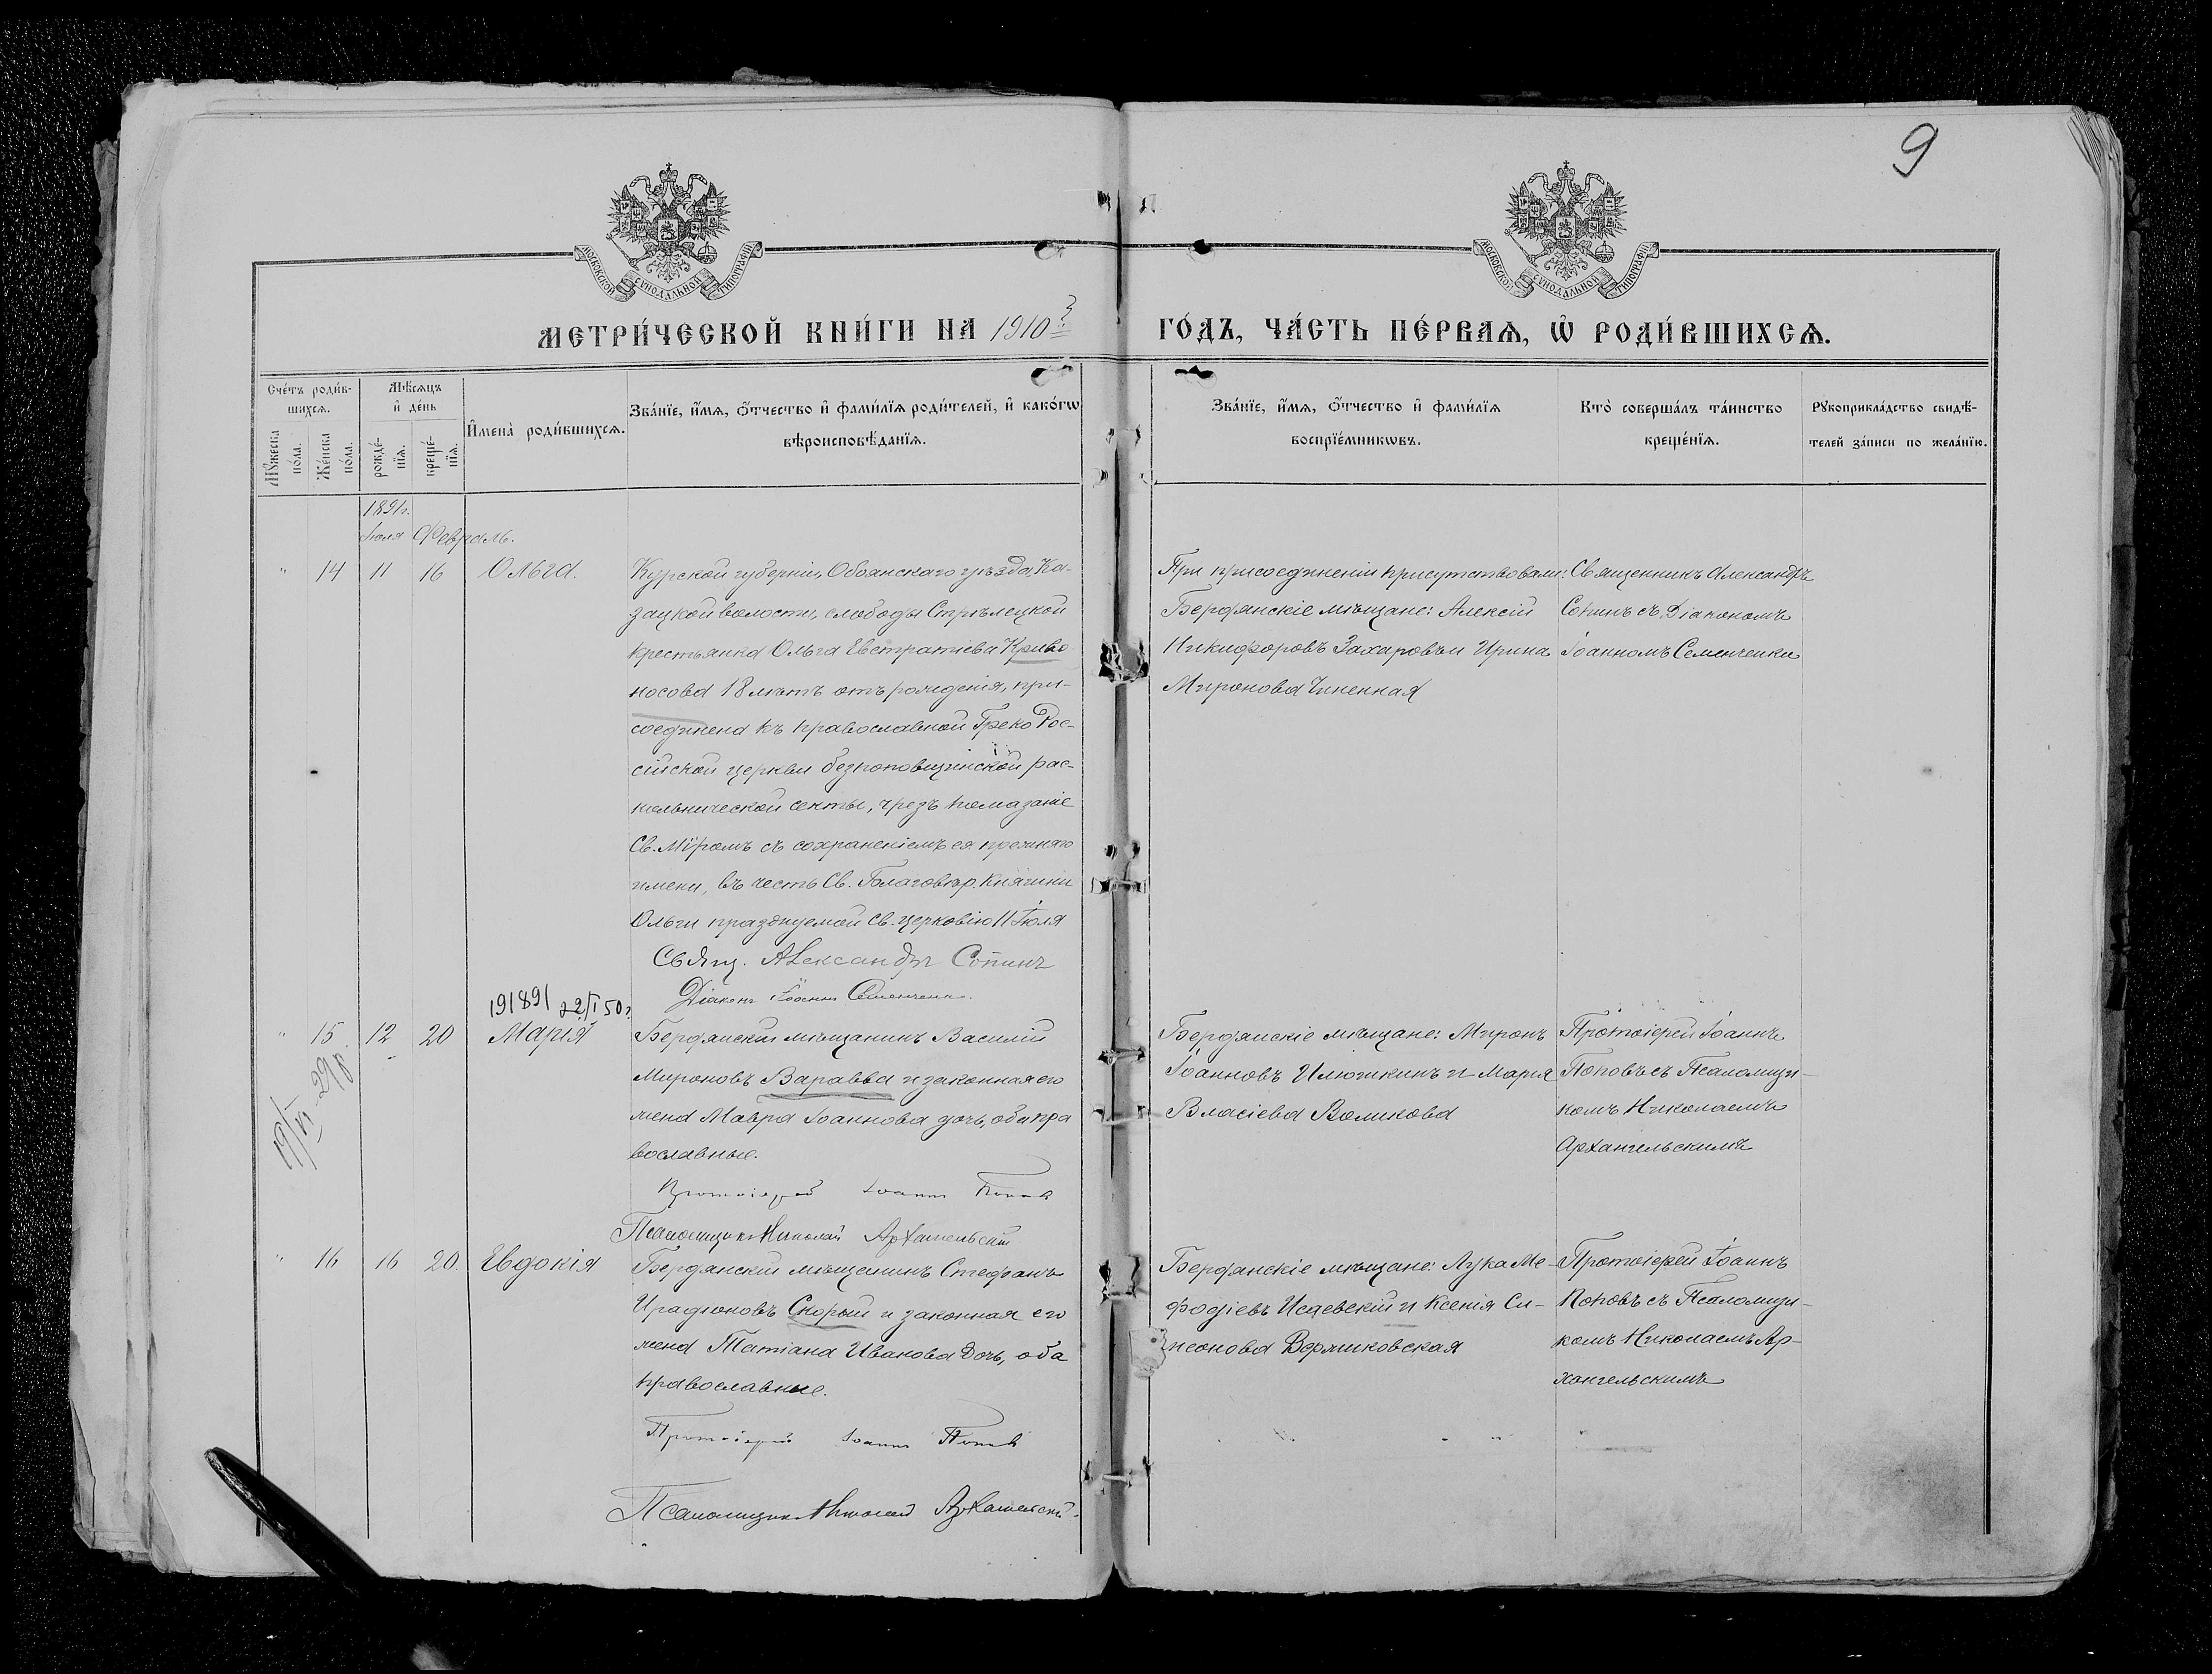 9
МОСКОВСКОЙ СѴНОДАЛЬНОЙ ТИПОГРАФІИ
МОСКОВСКОЙ СѴНОДАЛЬНОЙ ТИПОГРАФІИ
МЕТРИ́ЧЕСКОЙ КНИ́ГИ НА 1910 г
ГО́ДЪ, ЧА́СТЬ ПЕ́РВАѦ, Ѡ҆ РОДИ́ВШИХСѦ.
Сче́тъ роди́в-
шихсѧ.
Мꙋ́жеска по́ла.
Же́нска по́ла.
Мѣ́сѧцъ
и҆ де́нь
рожде́-
нїѧ.
креще́-
нїѧ.
И҆мена̀ роди́вшихсѧ.
Зва́нїе, и҆́мѧ, ѻ҆́тчество и҆ фами́лїѧ роди́телей, и҆ како́гѡ
вѣроисповѣ́данїѧ.
Зва́нїе, и҆́мѧ, ѻ҆́тчество и҆ фами́лїѧ
воспрїе́мникѡвъ.
Кто̀ соверша́лъ та́инство
креще́нїѧ.
Рꙋкоприкла́дство свидѣ́-
телей за́писи по жела́нїю.
1891г.
Іюля Февраль.
" 14 11 16 Ольга.
Курской губерніи, Обоянскаго уѣзда, Ка-
зацкой волости, слободы Стрѣлецкой
крестьянка Ольга Евстратіева Криво
носова 18 лѣтъ отъ рожденія, при-
соединена къ православной Греко Рос-
сійской церкви безпоповщинской рас-
кольнической секты, чрезъ помазаніе
Св. Мѵромъ съ сохраненіемъ ея прежняго
имени, въ честь Св. Благовѣр. Княгини
Ольги празднуемой св. церковію 11 Іюля
Свящ. Александръ Сопинъ
Діаконъ Іоаннъ Семенченко.
При присоединеніи присутствовали:
Бердянскіе мѣщане: Алексій
Никифоровъ Захаровъ и Ирина
Миронова Чиненная
Священникъ Александръ
Сопинъ съ Діакономъ
Іоанномъ Семенченко
191891 22/I 50г
" 15 12 20 Марія
Бердянскій мѣщанинъ Василій
Мироновъ Варавва и законная его
жена Мавра Іоаннова дочь, оба пра
вославные.
Протоіерей Іоаннъ Поповъ
Псаломщикъ Николай Архангельскій
Бердянскіе мѣщане: Миронъ
Іоанновъ Илюшкинъ и Марія
Власіева Воликова
Протоіерей Іоаннъ
Поповъ съ Псаломщи-
комъ Николаемъ
Архангельскимъ
" 16 16 20 Евдокія
Бердянскій мѣщанинъ Стефанъ
Ирадіоновъ Скорый и законная его
жена Татіана Иванова дочь, оба
православные.
Протоіерей Іоаннъ Поповъ
Псаломщикъ Николай Архангельскій
Бердянскіе мѣщане: Лука Ме-
фодіевъ Исаевскій и Ксенія Си-
меонова
Протоіерей Іоаннъ
Поповъ съ Псаломщи-
комъ Николаемъ Ар-
хангельскимъ